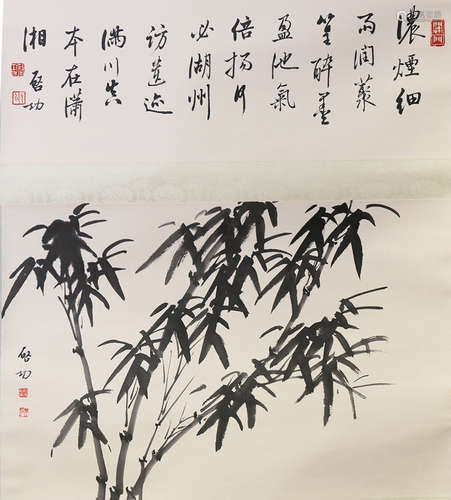 濃煙細
雨潤叢
篁醉墨
盈池氣
倍揚何
必湖州
訪遺迹
滿川真
本在瀟
湘 啓功
啓功